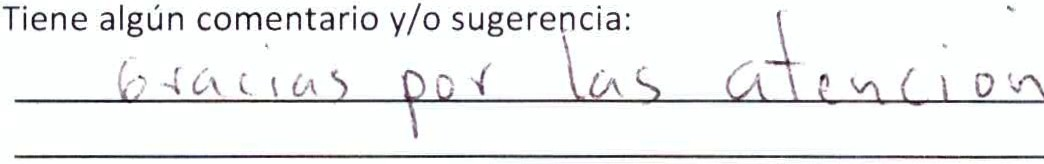 Tiene algún comentario y/o sugerencia:
Gracias por las atencion